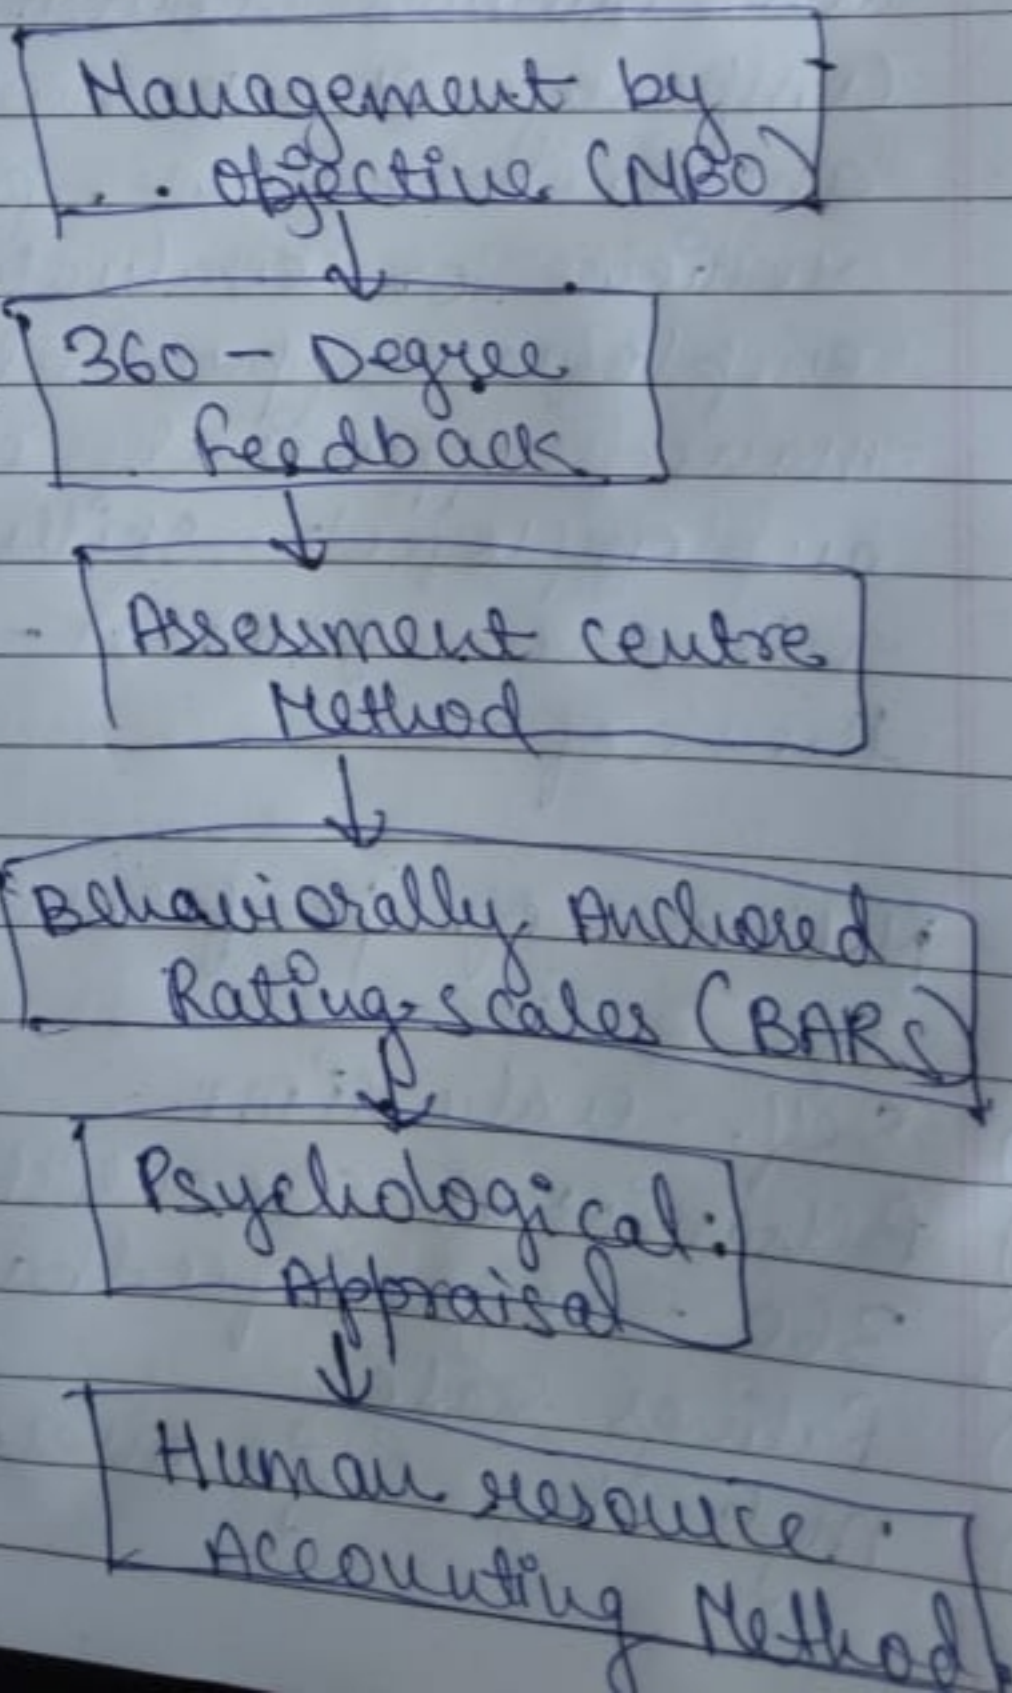 Management by
Objective (MBO)
360 - Degree
feedback
Assessment centre
Method
Behaviorally Anchored
Rating scales (BARS)
Psychological
Appraisal
Human resource
Accounting Method